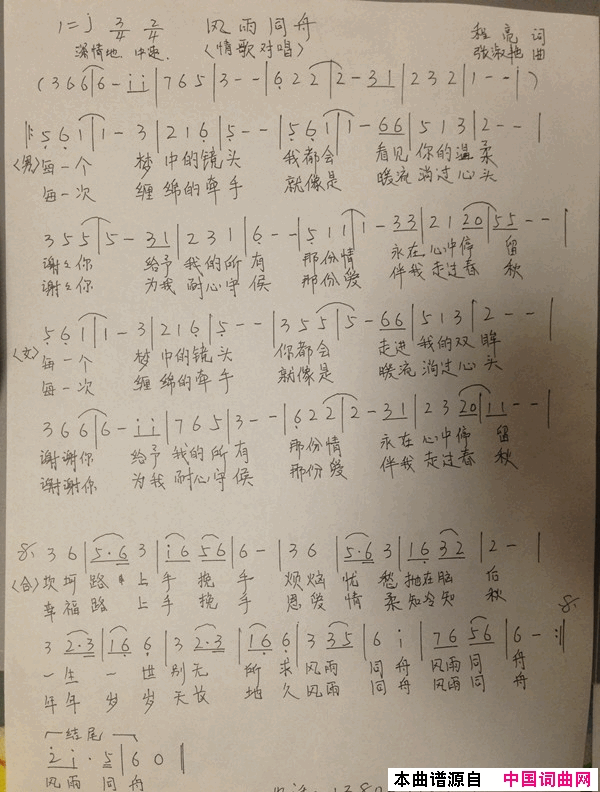 1=J 3/4 2/4 风雨同舟 程亮 词
深情地 中速 〈情歌对唱〉 张淑艳 曲
(366|6-ii|765|3--|622|2-31|232|1--|)
‖:561|1-3|216|5--|561|1-66|513|2--|
〈男〉每一个 梦中的镜头 我都会 看见你的温柔
每一次 缠绵的牵手 就像是 暖流淌过心头
355|5-31|231|6--|511|1-33|2120|55--|
谢谢你 给予我的所有 那份情 永在心中停留
谢谢你 为我耐心守候 那份爱 伴我走过春秋
561|1-3|216|5---|355|5-66|513|2--|
〈女〉每一个 梦中的镜头 你都会 走进我的双眸
每一次 缠绵的牵手 就像是 暖流淌过心头
366|6-ii|765|3--|622|2-31|2320|11--|
谢谢你 给予我的所有 那份情 永在心中停留
谢谢你 为我耐心守候 那份爱 伴我走过春秋
36|5·63|i656|6-|36|5·63|1632|2-|
〈合〉坎坷路上手挽手 烦恼忧愁抛在脑后
幸福路上手挽手 恩爱情柔知冷知秋
32·3|166|32·3|166|335|6i|7656|6-:‖
一生一世别无所求风雨同舟风雨同舟
年年岁岁天长地久风雨同舟风雨同舟
结尾
2i·5|60‖
风雨同舟
本曲谱源自 中国词曲网